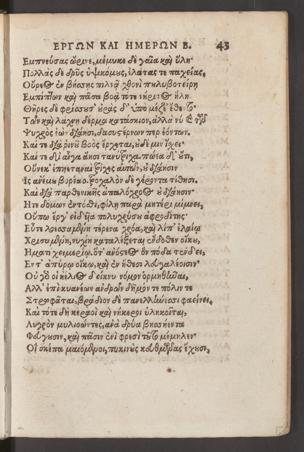 ΕΡΓΩΝ ΚΑΙ ΗΜΕΡΩΝ Β. 43
Ἐμπνεύσας ὤρινε, μέμυκε δὲ γαῖα καὶ ὕλη·
Πολλὰς δὲ δρῦς ὑψικόμους, ἐλάτας τε παχείας,
Οὔρεος ἐν βήσσῃς πιλνᾷ χθονὶ πουλυβοτείρῃ
Ἐμπίπτων καὶ πᾶσα βοᾷ τότε νήριτος ὕλη.
Θῆρες δὲ φρίσσουσ' οὐρὰς δ' ὑπὸ μέζε' ἔθεντο
Τῶν καὶ λάχνῃ δέρμα κατάσκιον, ἀλλά νυ καὶ τῶν
Ψυχρὸς ἐὼν διάησι, δασυστέρνων περ ἐόντων.
Καί τε διὰ ῥινοῦ βοὸς ἔρχεται, οὐδέ μιν ἴσχει·
Καί τε δι' αἶγα ἄησι τανύτριχα. πώεα δ' οὔτι,
Οὕνεκ' ἐπηεταναὶ τρίχες αὐτῶν, οὐ διάησιν
Ἲς ἀνέμου βορέου. τροχαλὸν δὲ γέροντα τίθησι.
Καὶ διὰ παρθενικῆς ἁπαλόχροος οὐ διάησιν
Ἥτε δόμων ἔντοσθε φίλῃ παρὰ μητέρι μίμνει,
Οὔπω ἔργ' εἰδυῖα πολυχρύσου ἀφροδίτης·
Εὖτε λοεσσαμένη τέρενα χρόα, καὶ λίπ' ἐλαίῳ
Χρισαμένη, νυχίη καταλέξεται ἔνδοθεν οἴκου,
Ἤματι χειμερίῳ, ὅτ' ἀνόστεος ὃν πόδα τένδει,
Ἔν τ' ἀπύρῳ οἴκῳ, καὶ ἐν ἤθεσι λευγαλέοισιν·
Οὐ γάρ οἱ ἠέλιος δείκνυ νομὸν ὁρμηθῆναι,
Ἀλλ' ἐπὶ κυανέων ἀνδρῶν δῆμόν τε πόλιν τε
Στρωφᾶται, βράδιον δὲ πανελλήνεσσι φαείνει,
Καὶ τότε δὴ κεραοὶ καὶ νήκεροι ὑληκοῖται,
Λυγρὸν μυλιόωντες, ἀνὰ δρία βησσήεντα
Φεύγουσιν, καὶ πᾶσιν ἐνὶ φρεσὶ τοῦτο μέμηλεν
Οἳ σκέπα μαιόμενοι, πυκινοὺς κευθμῶνας ἔχουσι,